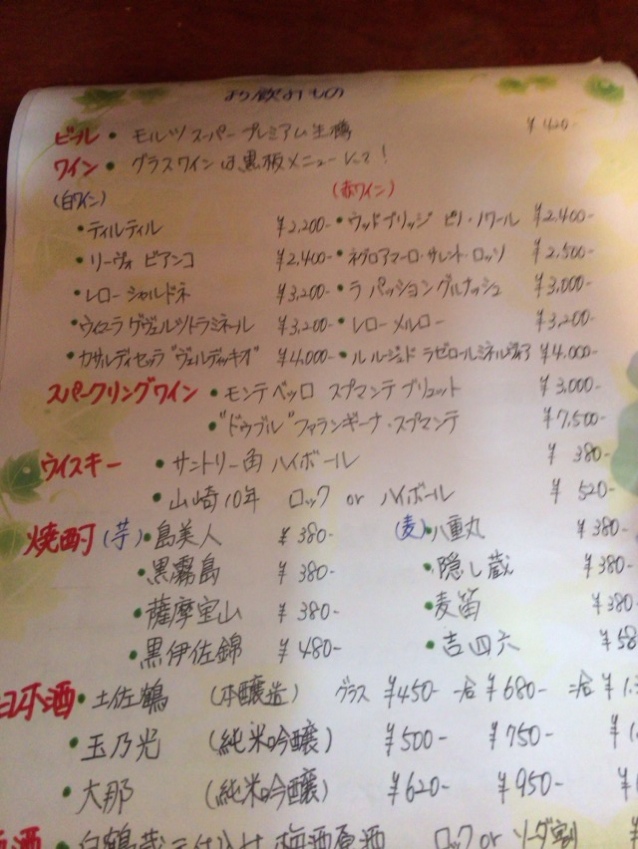 お飲みもの
ビール • モルツ スーパープレミアム生樽 ¥420-
ワイン • グラスワインは黒板メニューにて!
(白ワイン) (赤ワイン)
• ティルティル ¥2,200- • ウッドブリッジ ピノ・ノワール ¥2,400-
• リーヴォ ビアンコ ¥2,400- • ネグロアマーロ・サレント・ロッソ ¥2,500-
• レロー シャルドネ ¥3,200- • ラ パッション グルナッシュ ¥3,000-
• ゲヴュルツトラミネール ¥3,200- • レロー メルロー ¥3,200-
• カサルディセッラ "ヴェルディッキオ" ¥4,000- • ル ルージュ ¥4,000-
スパークリングワイン • モンテベッロ スプマンテ ブリュット ¥3,000-
• "ドゥブル" ファランギーナ・スプマンテ ¥7,500-
ウイスキー • サントリー角 ハイボール ¥380-
• 山崎10年 ロック or ハイボール ¥520-
焼酎 (芋) • 島美人 ¥380- (麦) • 八重丸 ¥380-
• 黒霧島 ¥380- • 隠し蔵 ¥380-
• 薩摩宝山 ¥380- • 麦笛 ¥380
• 黒伊佐錦 ¥480- • 吉四六 ¥58
日本酒 • 土佐鶴 (本醸造) グラス ¥450- 一合 ¥680- 二合 ¥1.
• 玉乃光 (純米吟醸) ¥500- ¥750- ¥1.
• 大那 (純米吟醸) ¥620- ¥950- ¥
酒 • 白鶴蔵元仕込み 梅酒原酒 ロック or ソーダ割